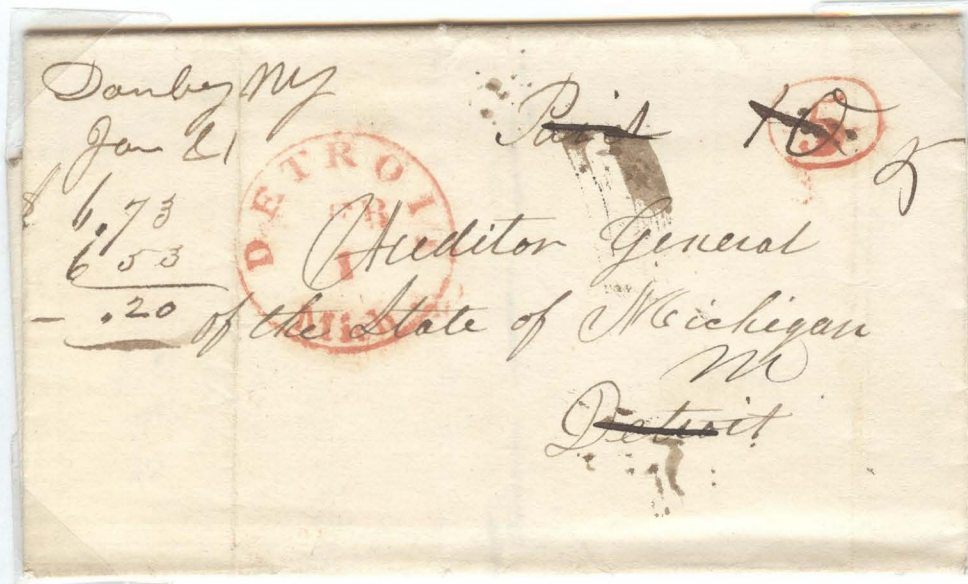 Danby NY
Jan 21
Paid 10
5
5
6.73
6 53
- .20
DETROIT
FEB
1
Mich.
Auditor General
of the State of Michigan
M
Detroit